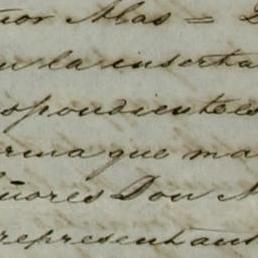 ñor Alas =
n la inserta
spondientes
rma que ma
ñores Don
representans